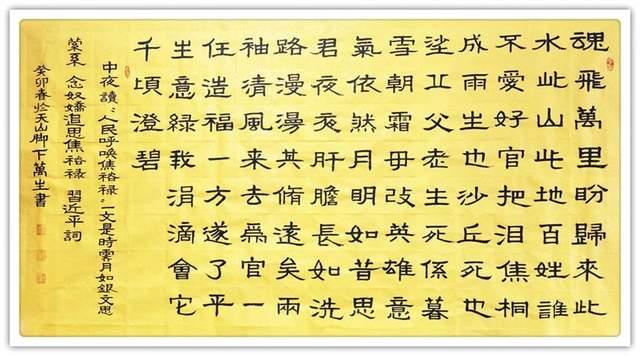 魂飛萬里盼歸來此
水此山此地百姓誰
不愛好官把泪焦桐
成雨生也沙丘死也
沙丘父老生死係暮
雪朝霜毋改英雄意
氣依然月明如昔思
君夜夜肝膽長如洗
路漫漫其脩遠矣兩
袖清風来去爲官一
任造福一方遂了平
生意緑我涓滴會它
千頃澄碧
中夜讀"人民呼唤焦裕禄"一文是時霽月如銀文思
縈系 念奴嬌追思焦裕禄 習近平詞
癸卯春於天山脚下萬生書